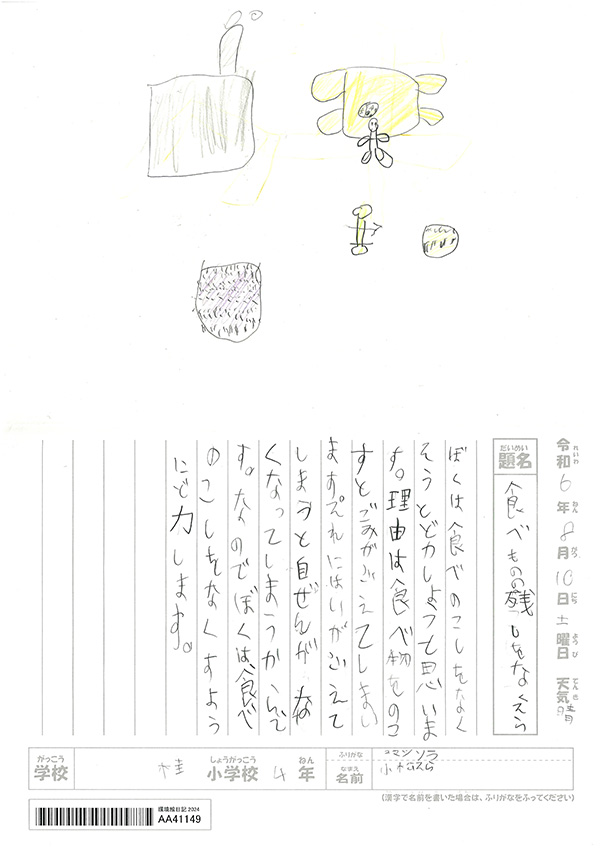 令和6年8月10日土曜日 天気 晴
れいわ ねん がつ にち ようび てんき
だいめい
題名
食べものの残しをなくそう
ぼくは食べのこしをなく
そうとどカしようと思いま
す。理由は食べ物をのこ
すとごみがふえてしまい
ます。それにはいがふえて
しまうと自ぜんがな
くなってしまうからで
す。なのでぼくは食べ
のこしをなくすよう
にど力します。
がっこう
学校
桂
しょうがっこう
小学校
4
ねん
年
ふりがな
なまえ
名前
(漢字で名前を書いた場合は、ふりがなをふってください)
環境絵日記 2024
AA41149